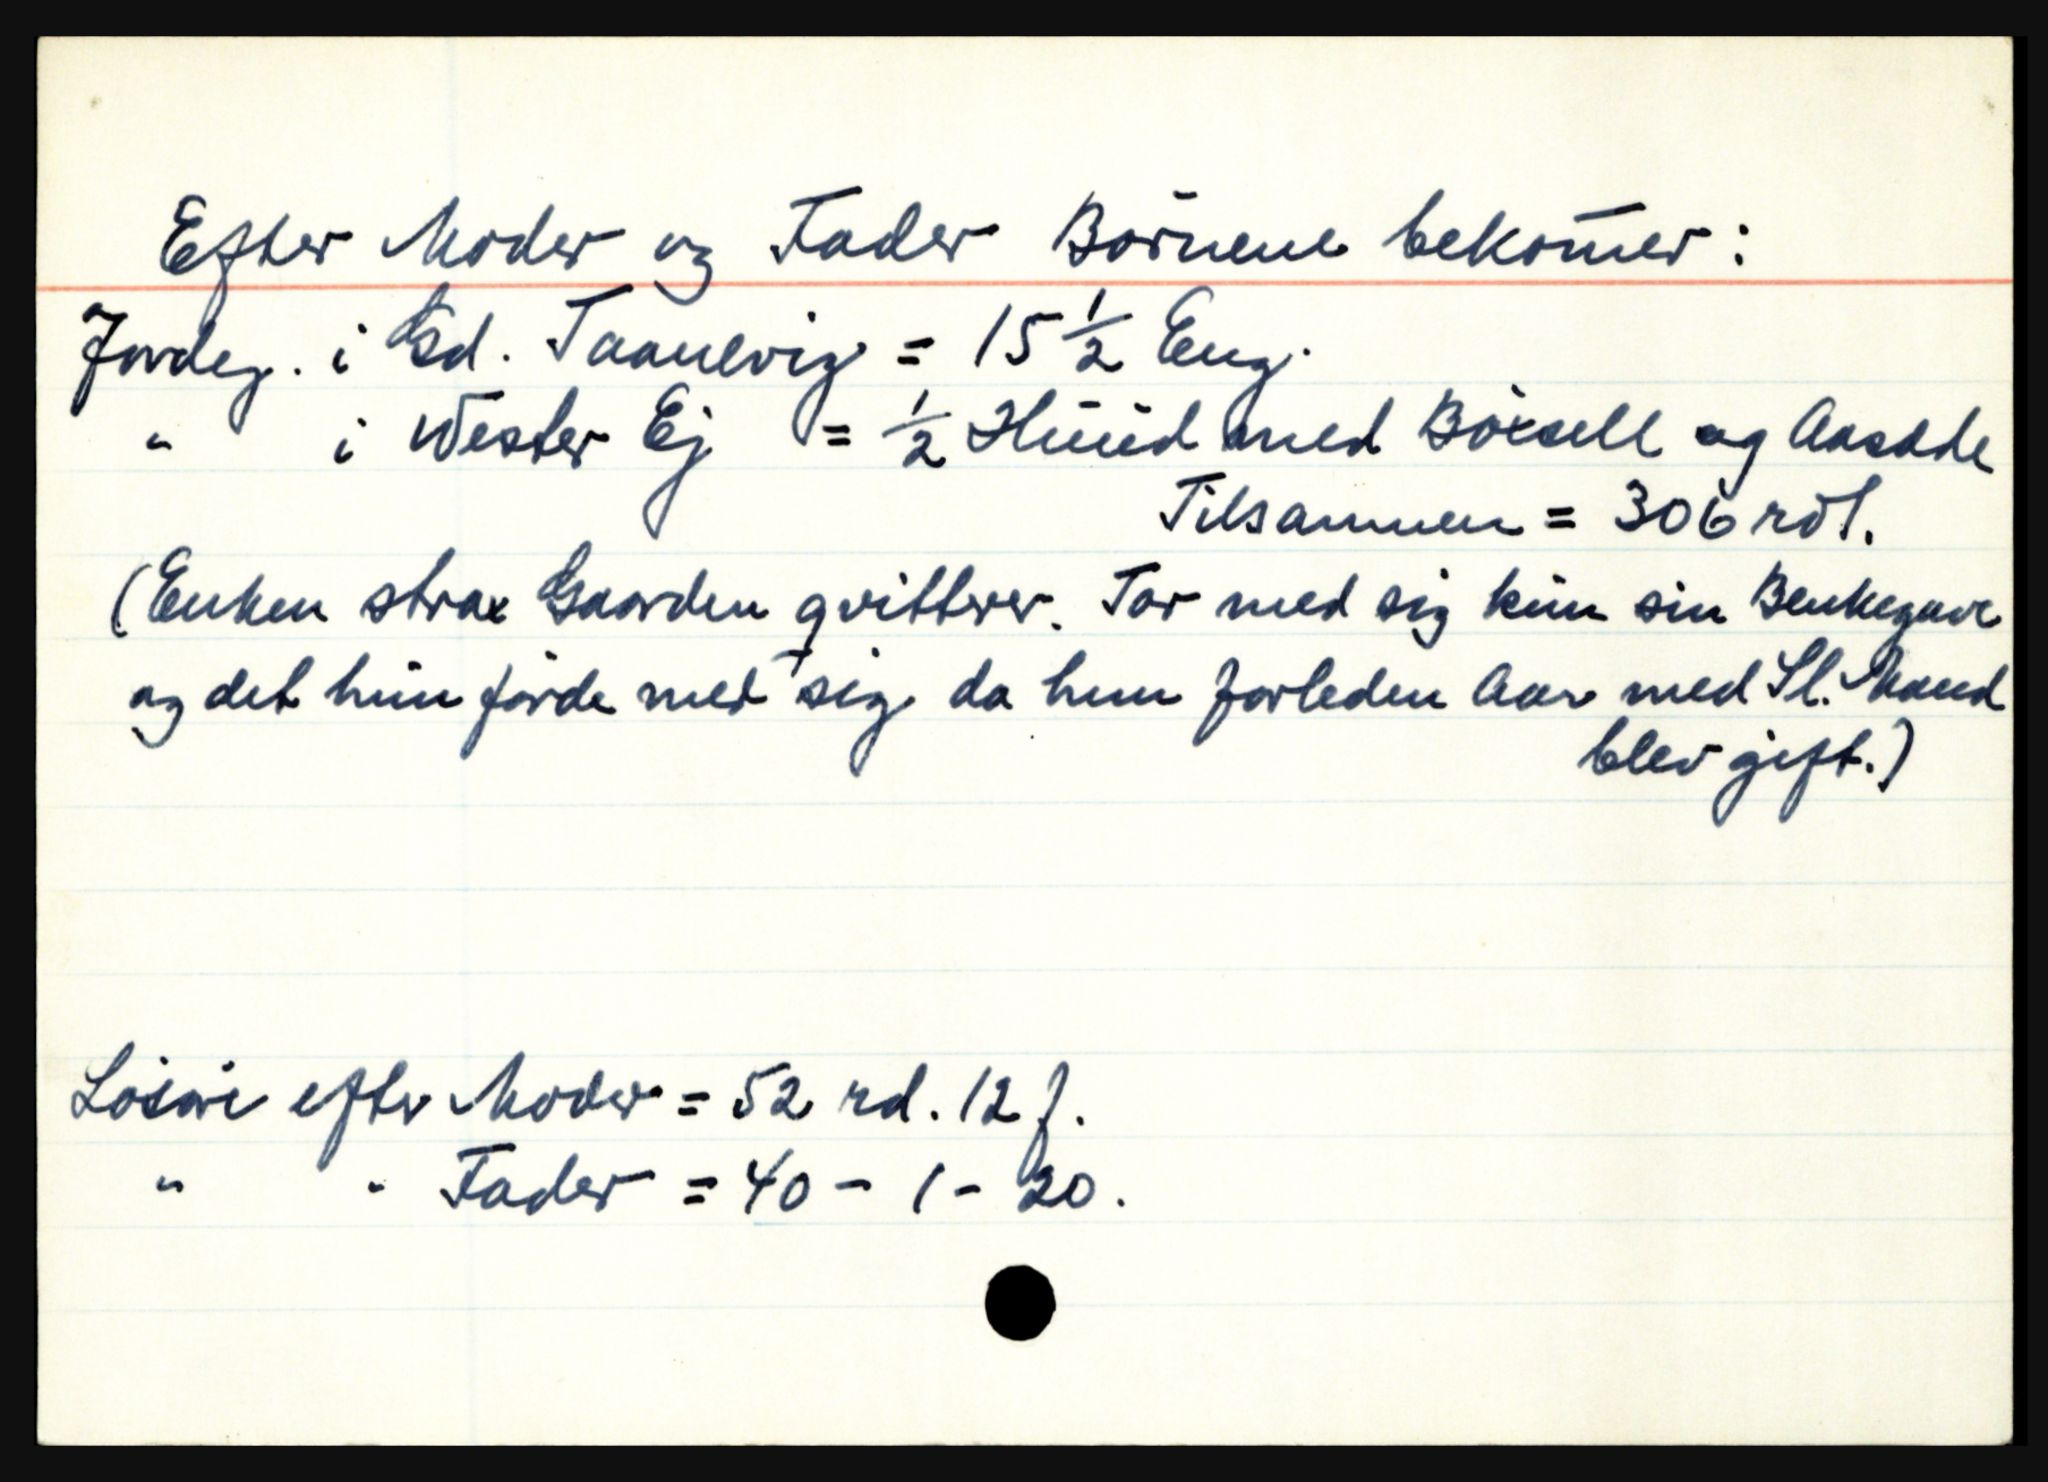 Efter Moder og Fader Börnene bekom̄er:
Jordeg. i Gd. Taanevig = 15 1/2 Eng.
" i Wester Ej = 1/2 Hŭŭd med Böxsell og Aasæde
Tilsammen = 306 rdl.
(Enken strax Gaarden qvitterer. Tar med sig kŭn sin Benkegave
og det hŭn förde med sig da hun forleden Aar med Sl. Mand
blev gift.)
Lösöre efter Moder = 52 rd. 12 ſ.
" " Fader = 40 - 1 - 20.